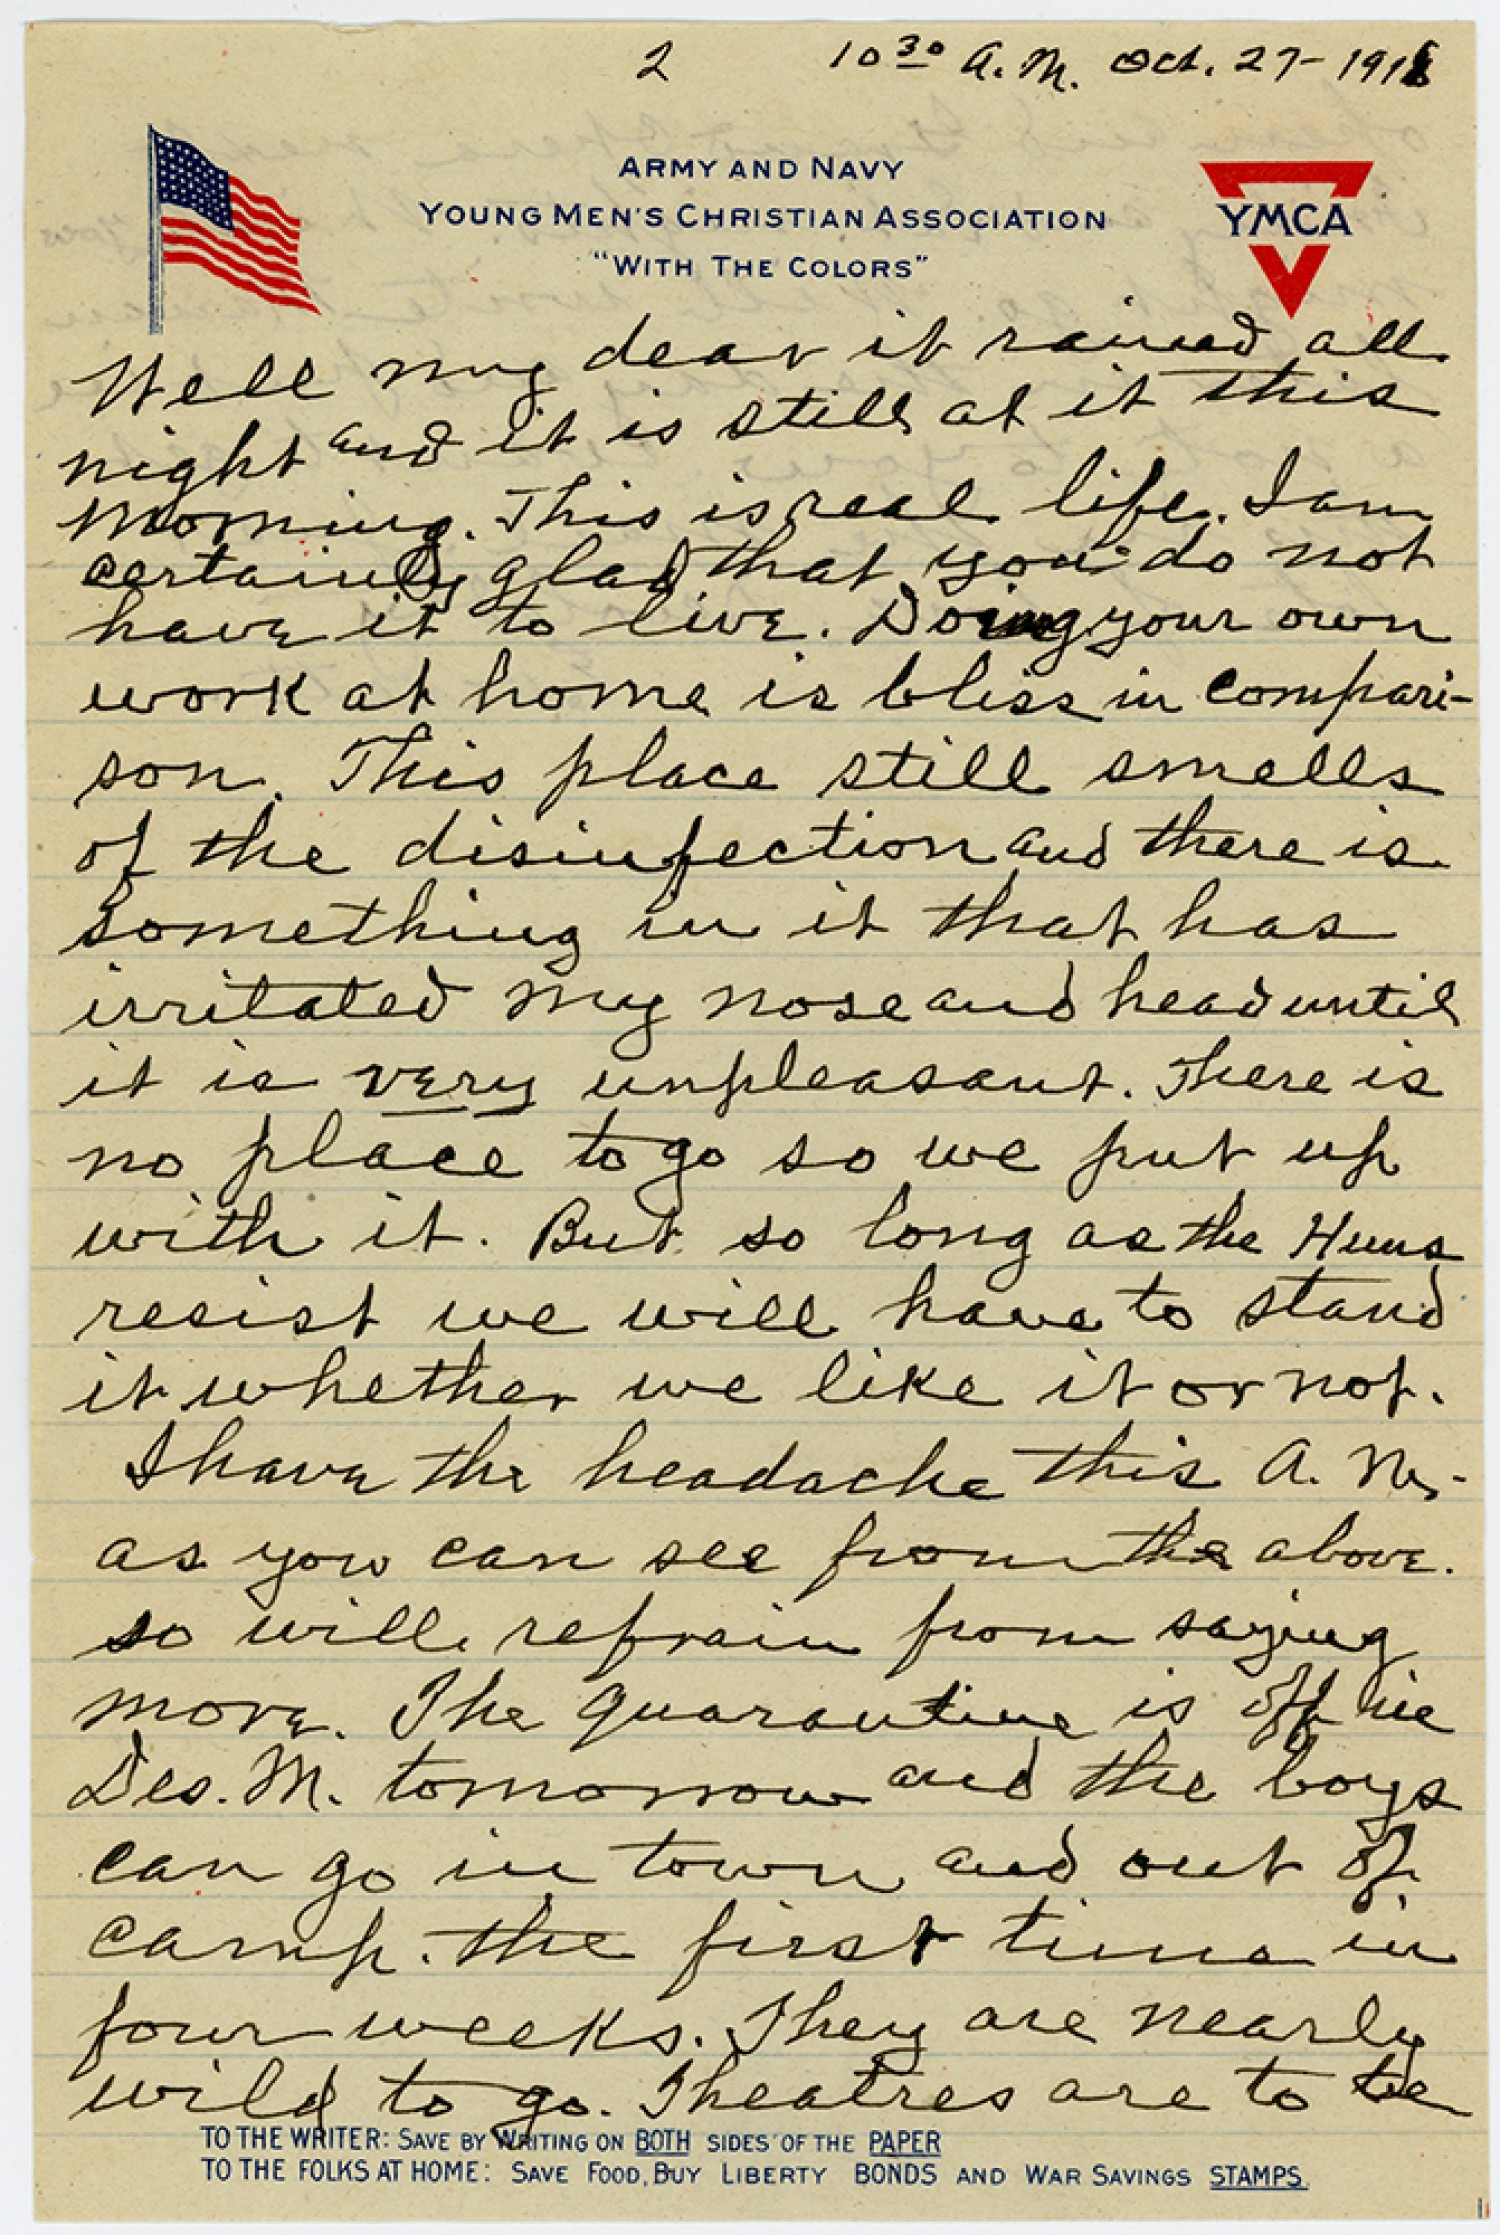 2 10 30 A.M. Oct. 27-1918
ARMY AND NAVY
YOUNG MEN'S CHRISTIAN ASSOCIATION
"WITH THE COLORS"
YMCA
Well my dear it rained all
night and it is still at it this
morning. This is real life. I am
certainly glad that you do not
have it to live. Doing your own
work at home is bliss in compari-
son. This place still smells
of the disinfection and there is
something in it that has
irritated my nose and head until
it is very unpleasant. There is
no place to go so we put up
with it. But so long as the Huns
resist we will have to stand
it whether we like it or not.
I have the headache this A. M.-
as you can see from the above.
so will refrain from saying
more. The quarantine is off in
Des. M. tomorrow and the boys
can go in town and out of
camp. the first time in
four weeks. They are nearly
wild to go. Theatres are to be
TO THE WRITER: SAVE BY WRITING ON BOTH SIDES OF THE PAPER
TO THE FOLKS AT HOME: SAVE FOOD, BUY LIBERTY BONDS AND WAR SAVINGS STAMPS.